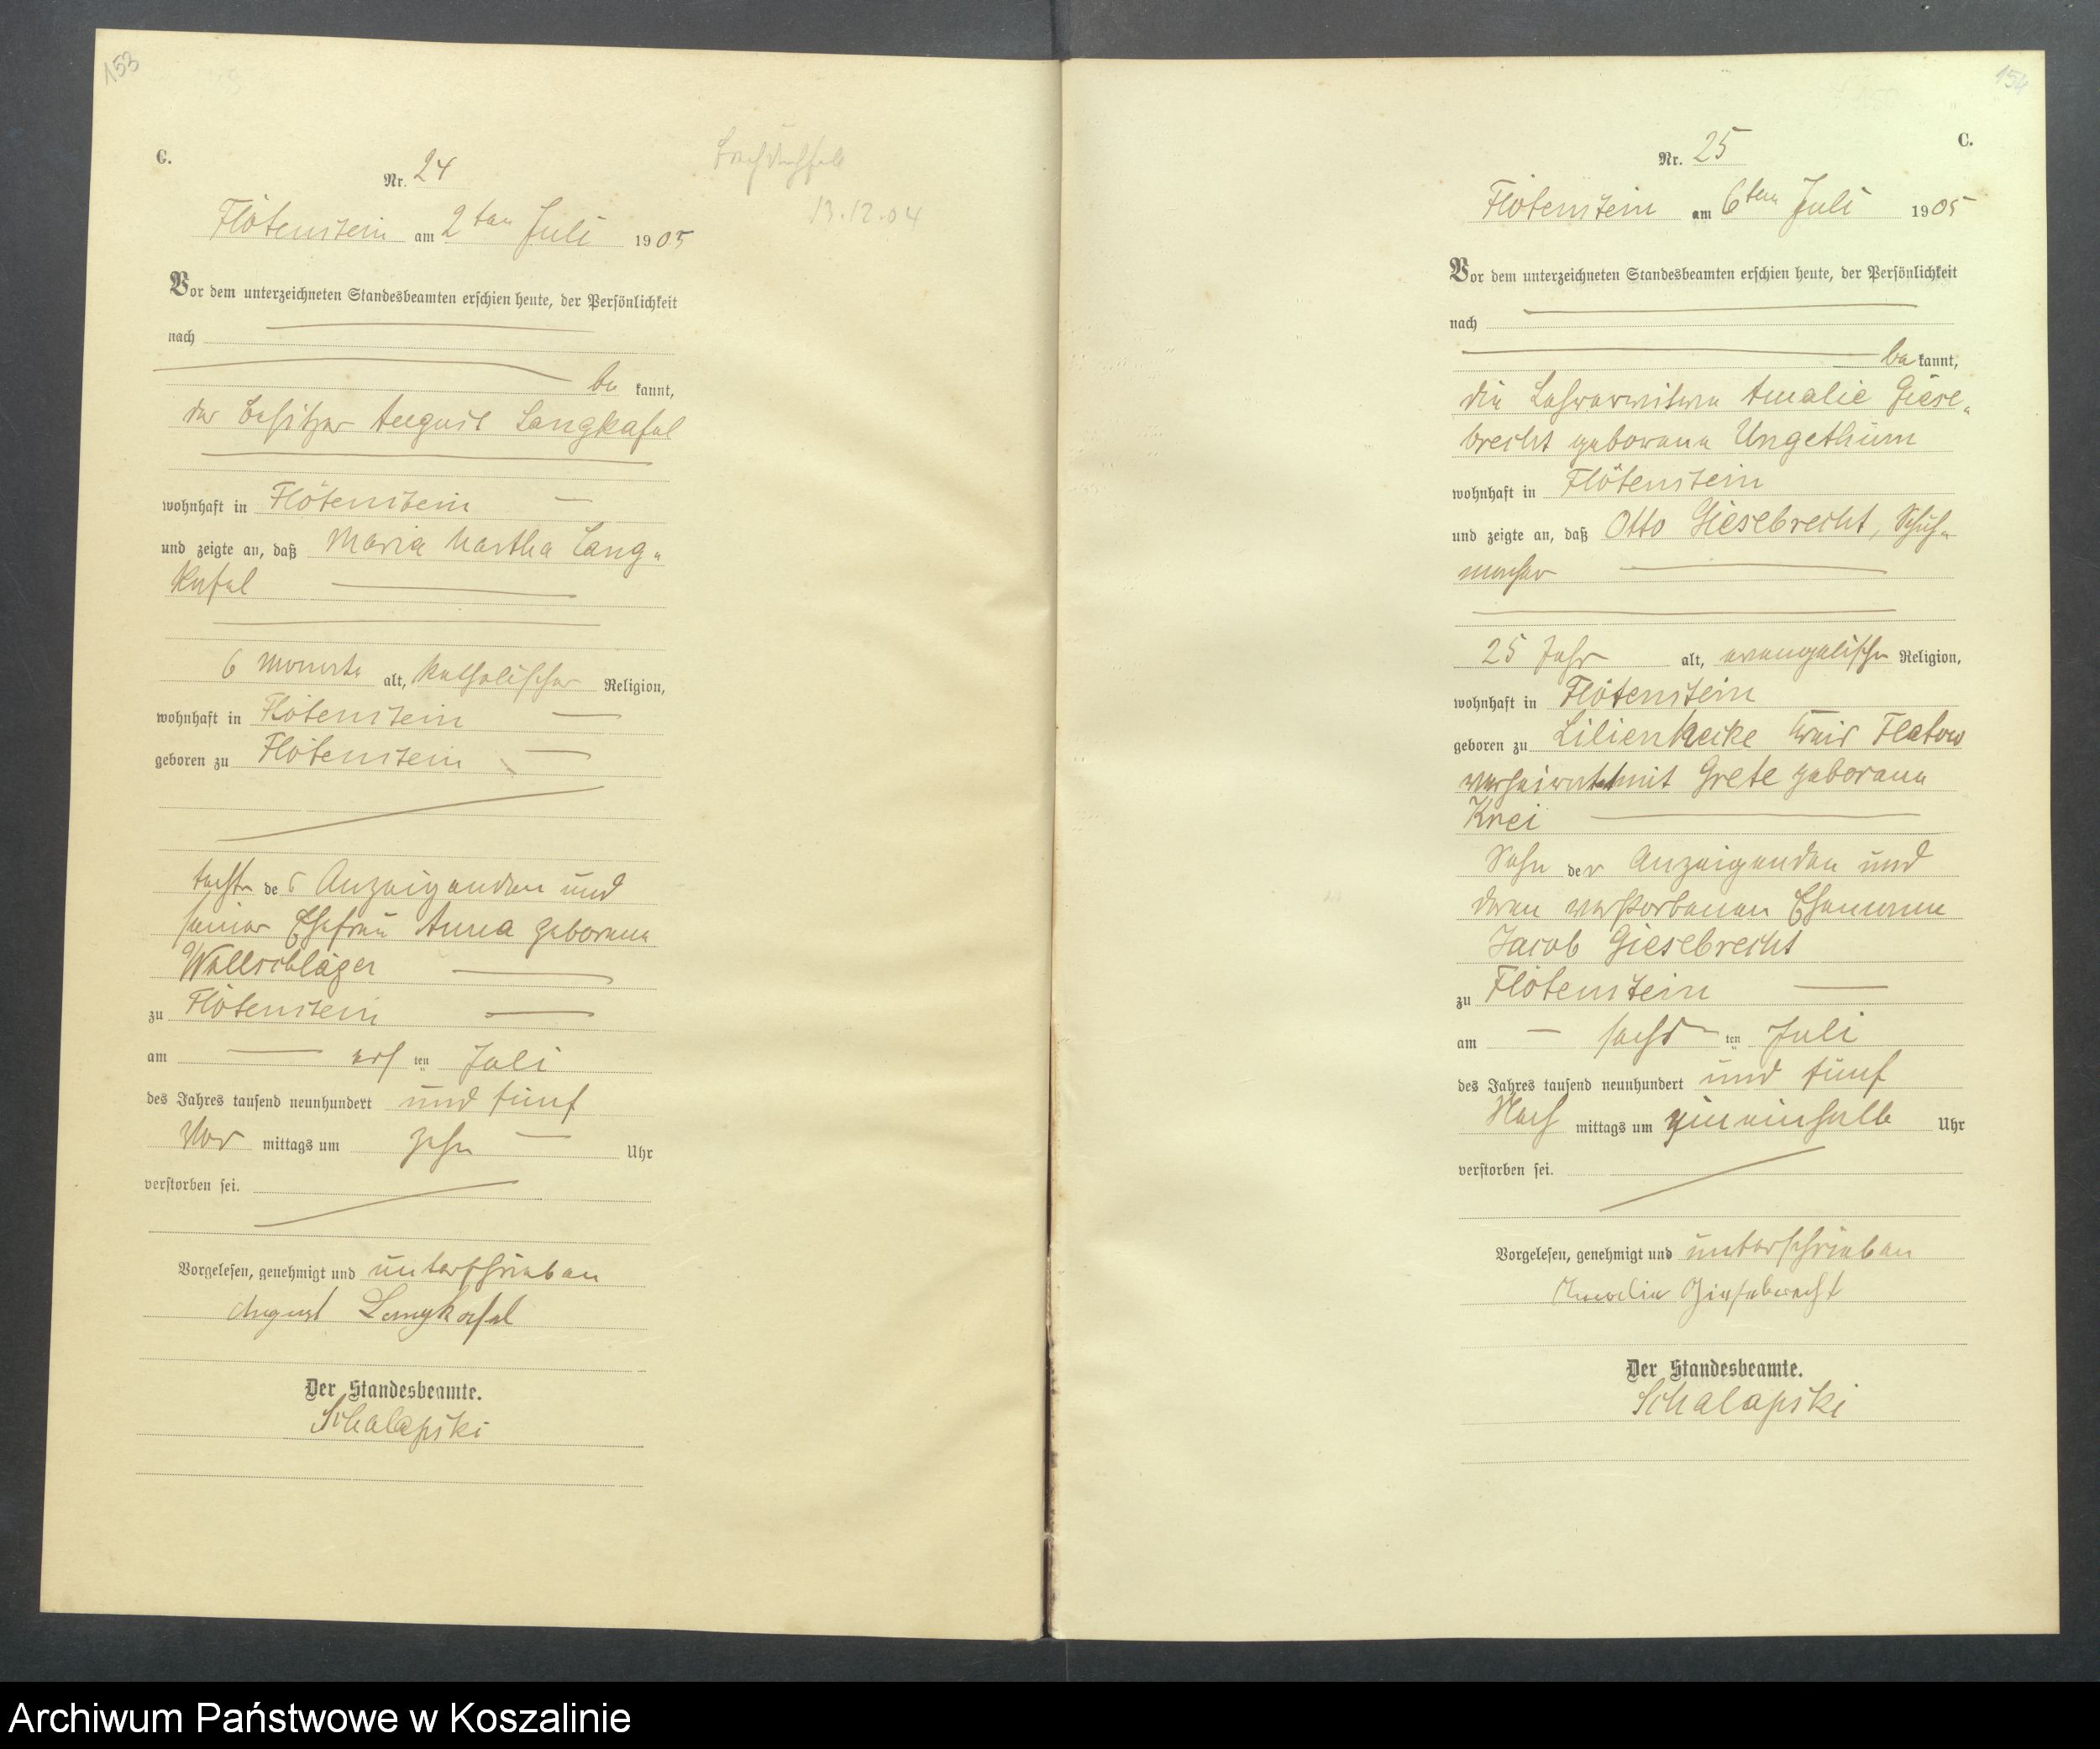 153
C.
Nr. 24
13.12.04
Flötenstein am 2ten Juli 1905
Vor dem unterzeichneten Standesbeamten erschien heute, der Persönlichkeit
nach
be kannt,
der Besitzer August Langkafel
wohnhaft in Flötenstein
und zeigte an, daß Maria Martha Lang-
kafel
6 Monate alt, katholischer Religion,
wohnhaft in Flötenstein
geboren zu Flötenstein
de s Anzeigenden und
seiner Ehefrau Anna geborene
Wollschläger
zu Flötenstein
am ers ten Juli
des Jahres tausend neunhundert und fünf
Vor mittags um zehn Uhr
verstorben sei.
Vorgelesen, genehmigt und unterschrieben
August Langkafel
Der Standesbeamte.
Schalapski
154
C.
Nr. 25
Flötenstein am 6ten Juli 1905
Vor dem unterzeichneten Standesbeamten erschien heute, der Persönlichkeit
nach
be kannt,
die Lehrerwitwe Amalie Giese-
brecht geborene Ungethüm
wohnhaft in Flötenstein
und zeigte an, daß Otto Giesebrecht, Schuh-
macher
25 Jahr alt, evangelischer Religion,
wohnhaft in Flötenstein
geboren zu Lilienhecke Kreis Flatow
verheiratet mit Grete geborene
Krei
Sohn der Anzeigenden und
deren verstorbenen Ehemann
Jacob Giesebrecht
zu Flötenstein
am sechs ten Juli
des Jahres tausend neunhundert und fünf
Nach mittags um eineinhalb Uhr
verstorben sei.
Vorgelesen, genehmigt und unterschrieben
Amalie Giesebrecht
Der Standesbeamte.
Schalapski
Archiwum Państwowe w Koszalinie